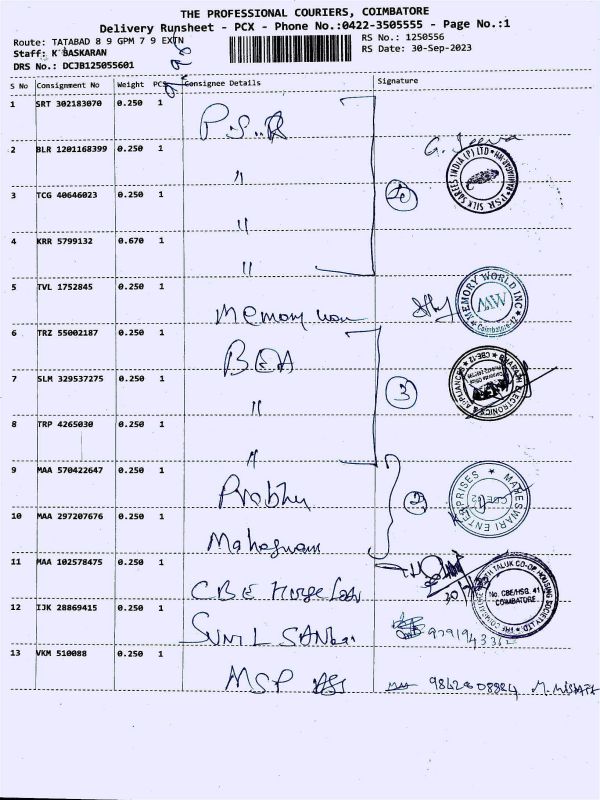 THE PROFESSIONAL COURIERS, COIMBATORE
Delivery Runsheet - PCX - Phone No.:0422-3505555 - Page No.:1
Route: TATABAD 8 9 GPM 7 9 EXTN
RS No.: 1250556
Staff: K BASKARAN
RS Date: 30-Sep-2023
DRS No.: DCJB125055601
S No Consignment No Weight PCS Consignee Details Signature
1 SRT 302183070 0.250 1 P.S.R
2 BLR 1201168399 0.250 1 "
3 TCG 40646023 0.250 1 "
4 KRR 5799132 0.670 1 "
5 TVL 1752845 0.250 1 Memory
MEMORY WORLD INC
MW
Coimbatore-12
6 TRZ 55002187 0.250 1
7 SLM 329537275 0.250 1 "
3
BHARATH ELECTRONICS & APPLIANCES
CBE-12
8 TRP 4265030 0.250 1 "
9 MAA 570422647 0.250 1 Prabhu
2
MAHESWARI ENTERPRISES
10 MAA 297207676 0.250 1
11 MAA 102578475 0.250 1 CBE
No. CBE/HSG. 41
COIMBATORE
12 IJK 28869415 0.250 1 SUNIL
13 VKM 510088 0.250 1 MSP